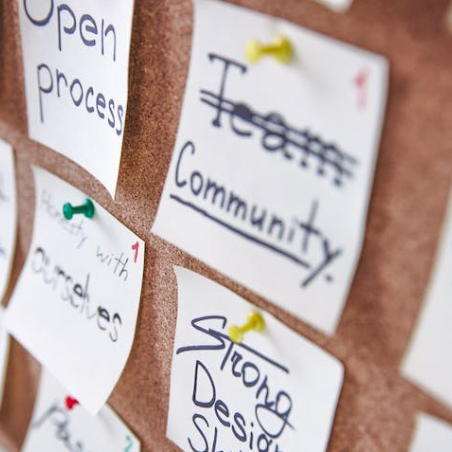 Open
process
1
Team
Community.
Honesty with
1
ourselves
Strong
Design